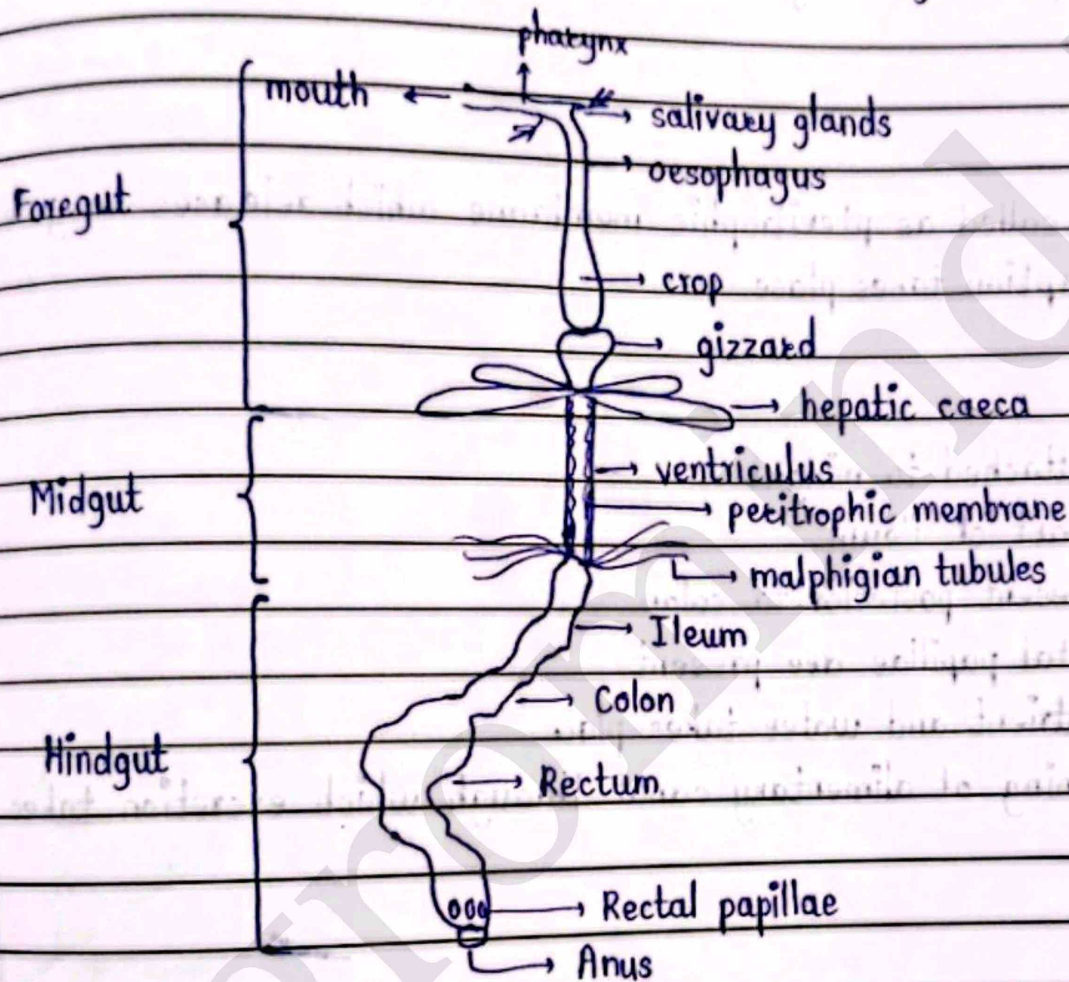 pharynx
mouth
salivary glands
oesophagus
Foregut
crop
gizzard
hepatic caeca
ventriculus
Midgut
peritrophic membrane
malphigian tubules
Ileum
Colon
Hindgut
Rectum
Rectal papillae
Anus